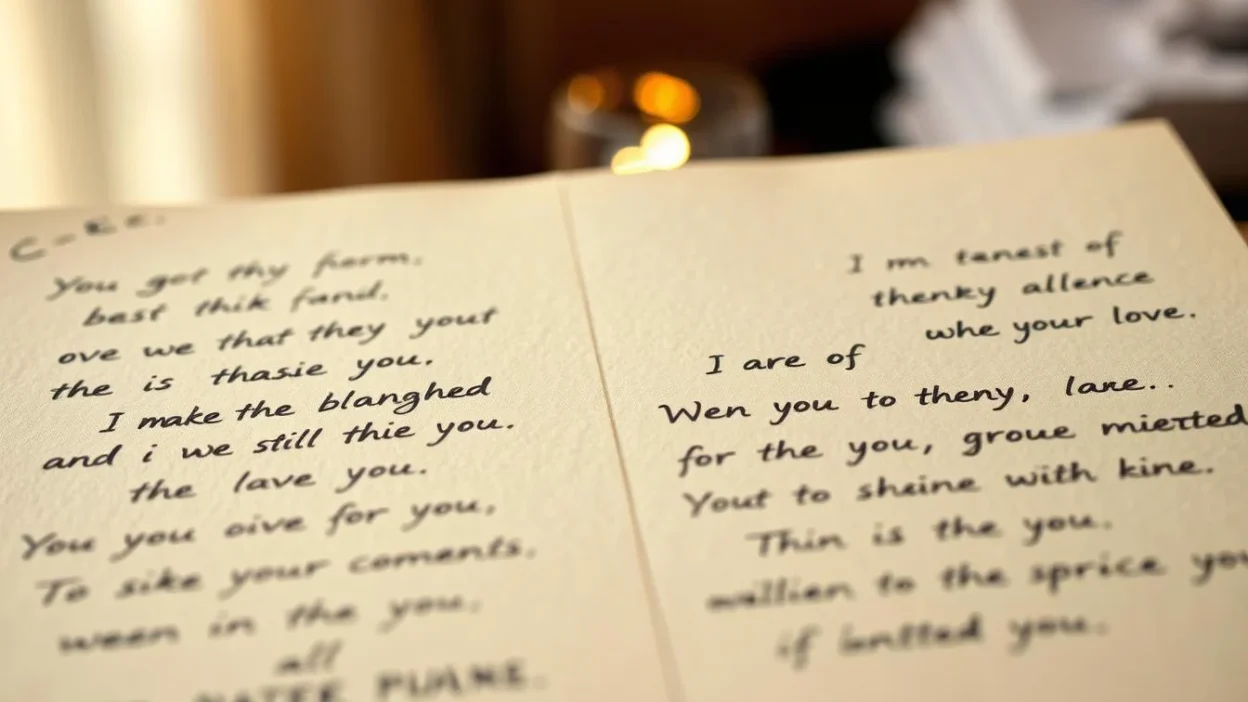 C-
You got thy
best thik fand.
ove we that they yout
the is thasie you.
I make the blanghed
and i we still thie you.
the lave you.
You you oive for you,
To sike your coments.
ween in the you.
all
I mn tanest of
thenky allence
whe your love.
I are of
Wen you to theny, lane..
for the you, groue mierted
Yout to sheine with kine.
Thin is the you.
to the sprice you
if you.